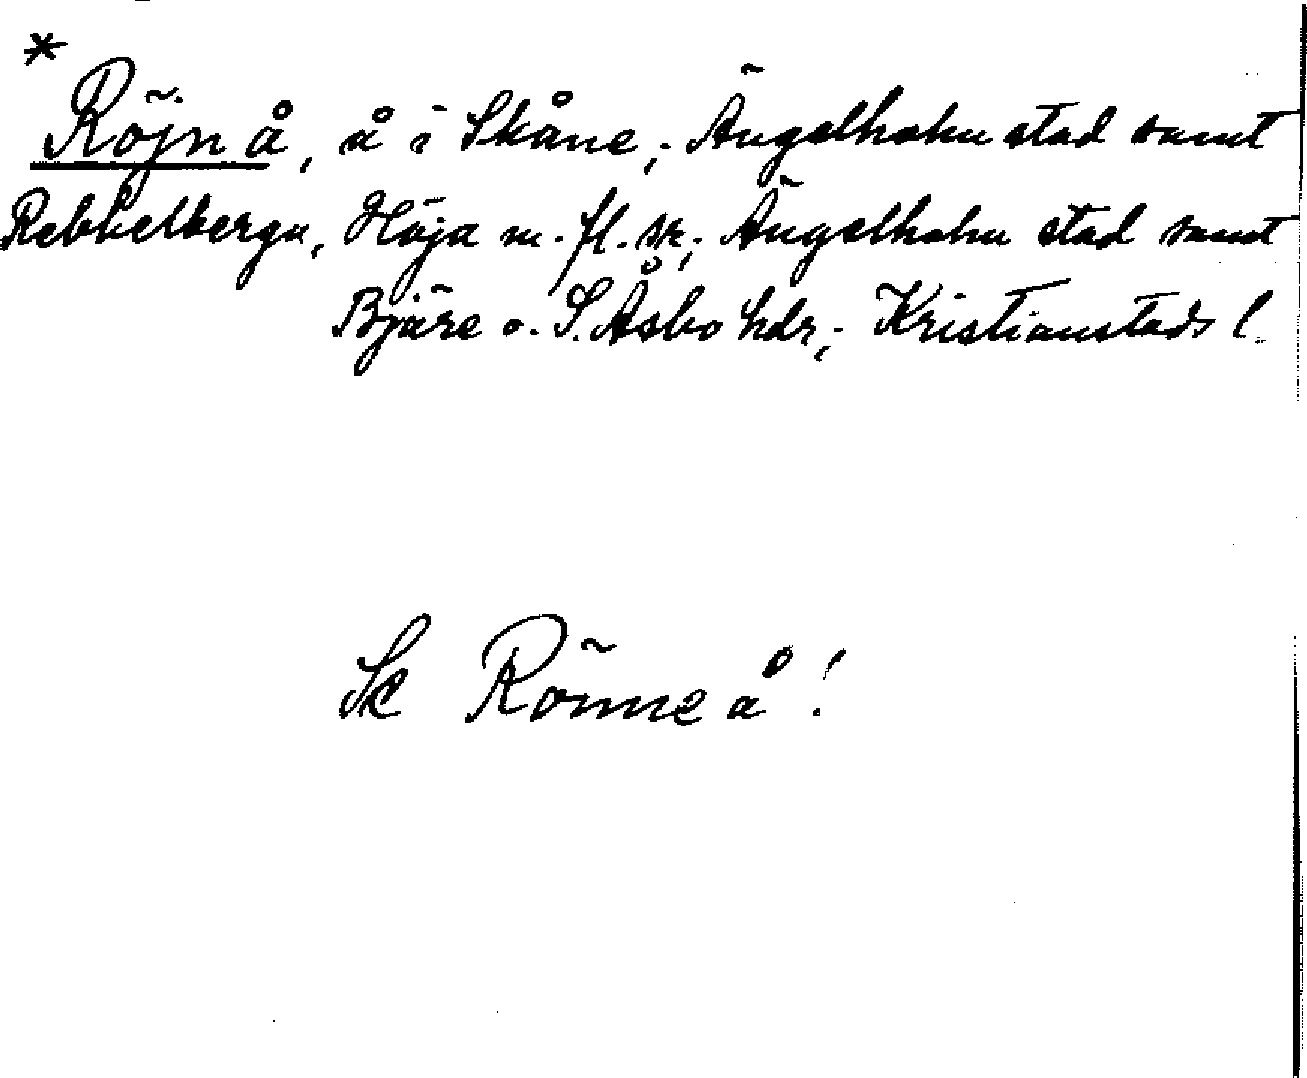 *
Röjn å, å i Skåne; Ängelholm stad samt
Rebbelberga, Höja m. fl. sk; Ängelholm stad samt
Bjäre o. S. Åsbo hdr; Kristianstads l.
Se Rönne å!